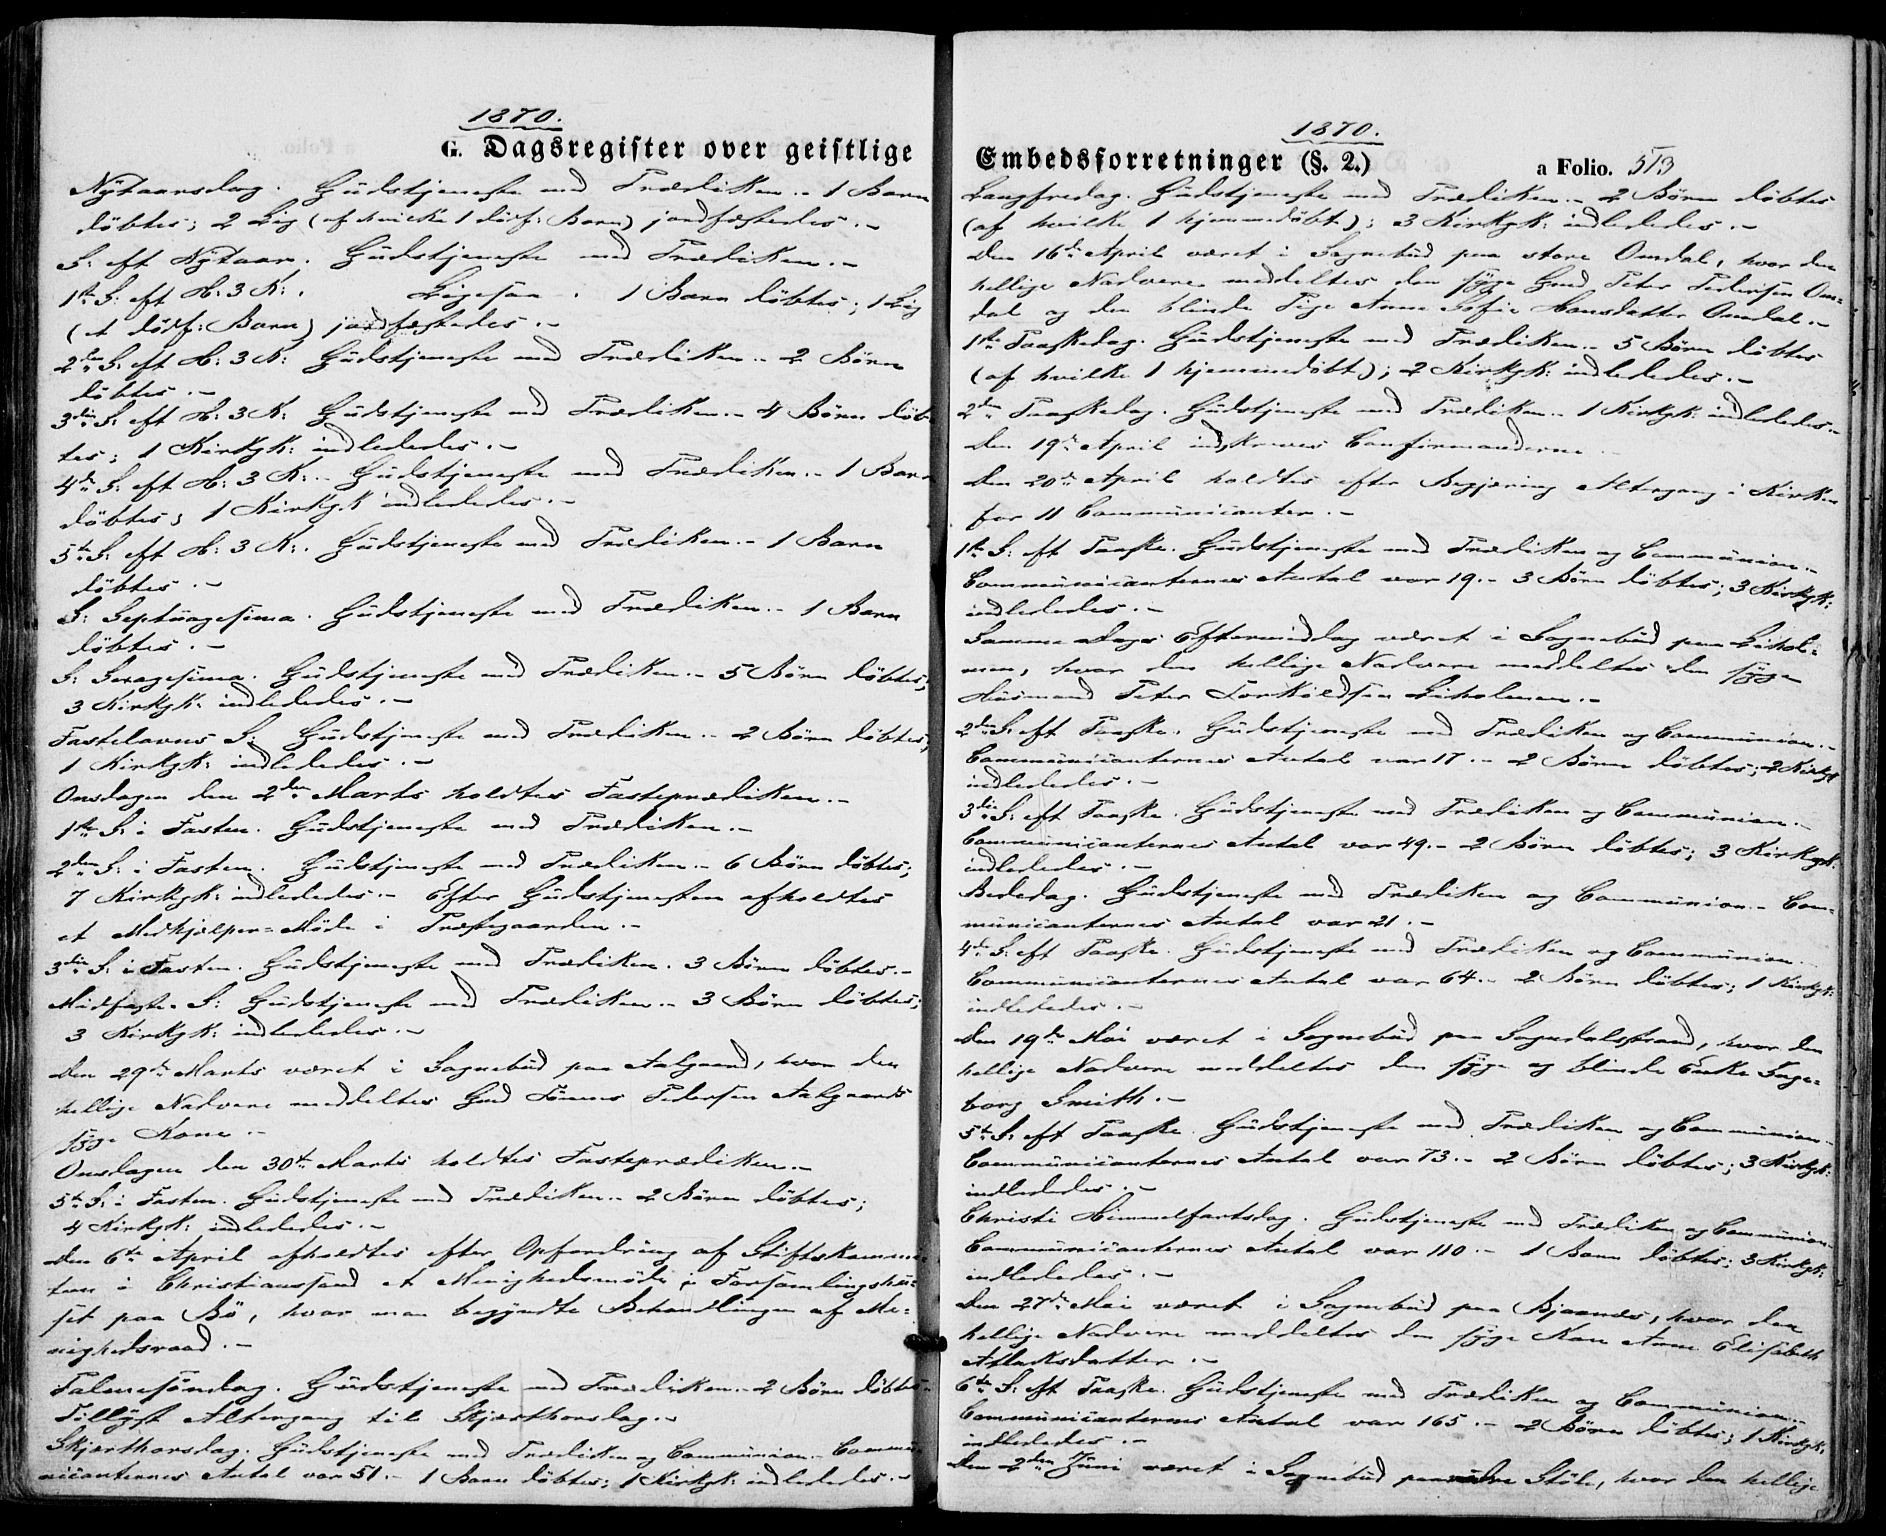 1870.
G. Dagsregister over geistlige
Nÿtaarsdag. Gudstjeneste med Prædiken. - 1 Barn
döbtes; 2 Lig (af hvilke 1 dödf: Barn) jordfæstedes. -
S: eft Nÿtaar. Gudstjeneste med Prædiken. -
1ste S: eft H: 3 K:. Ligesaa. 1 Barn döbtes; 1 Lig
(et dödf: Barn) jordfæstedes. -
2den S: eft H: 3 K: Gudstjeneste med Prædiken. - 2 Börn
döbtes. -
3die S: eft H: 3 K: Gudstjeneste med Prædiken. - 4 Börn döb-
tes; 1 Kirkgk: indlededes. -
4de S: eft H: 3 K:. Gudstjeneste med Prædiken. - 1 Barn
döbtes; 1 Kirkgk indlededes. -
5te S: eft H: 3 K:. Gudstjeneste med Prædiken. - 1 Barn
döbtes. -
S: Septuagesima. Gudstjeneste med Prædiken. - 1 Barn
döbtes. -
S: Sexagesima. Gudstjeneste med Prædiken. - 5 Börn döbtes;
3 Kirkgk: indlededes. -
Fastelavns S: Gudstjeneste med Prædiken. - 2 Börn döbtes;
1 Kirkgk: indlededes. -
Onsdagen den 2den Marts holdtes Fasteprædiken. -
1ste S: i Fasten. Gudstjeneste med Prædiken. -
2den S: i Fasten. Gudstjeneste med Prædiken. - 6 Börn döbtes;
7 Kirkgk: indlededes. - Efter Gudstjenesten afholdtes
et Medhjælper-Möde i Præstegaarden. -
3die S: i Fasten. Gudstjeneste med Prædiken. 3 Börn döbtes. -
Midfaste S: Gudstjeneste med Prædiken. - 3 Börn döbtes;
3 Kirkgk: indlededes. -
Den 29de Marts været i Sognebud paa Aalgaard, hvor den
hellige Nadvere meddeltes Gmd Tönnes Pedersen Aalgaards
sÿge Kone. -
Onsdagen den 30te Marts holdtes Fasteprædiken. -
5te S: i Fasten. Gudstjeneste med Prædiken. - 2 Börn döbtes;
4 Kirkgk: indlededes. -
Den 6te April afholdtes efter Opfordring af Stiftskommi-
teen i Christianssand et Menighedsmöde i Forsamlingshu-
set paa Bö, hvor man begÿndte Behandlingen af Me-
nighedsraad. -
Palmesöndag. Gudstjeneste med Prædiken. - 2 Börn döbtes.
Tillÿst Altergang til Skjærthorsdag. -
Skjærthorsdag. Gudstjeneste med Prædiken og Communion. Commu-
nicanternes Antal var 51. - 1 Barn döbtes; 1 Kirkgk: indlededes. -
1870.
Embedsforretninger (§. 2.) a Folio. 513
Langfredag. Gudstjeneste med Prædiken. - 2 Börn döbtes
(af hvilke 1 hjemmedöbt); 3 Kirkgk: indlededes. -
Den 16de April været i Sognebud paa store Omdal, hvor den
hellige Nadvere meddeltes den sÿge Gmd Peter Pedersen Om-
dal og den blinde Pige Anne Sofie Hansdatter Omdal. -
1ste Paaskedag. Gudstjeneste med Prædiken. - 5 Börn döbtes
(af hvilke 1 hjemmedöbt); 2 Kirkgk: indlededes. -
2den Paaskedag. Gudstjeneste med Prædiken. - 1 Kirkgk: indlededes. -
Den 19de April indskreves Confirmanderne. -
Den 20de April holdtes efter Begjæring Altergang i Kirken
for 11 Communicanter. -
1ste S: eft Paaske. Gudstjeneste med Prædiken og Communion. -
Communicanternes Antal var 19. - 3 Börn döbtes; 3 Kirkgk:
indlededes. -
Samme Dags Eftermiddag været i Sognebud paa Lihol-
men, hvor den hellige Nadvere meddeltes den sÿge
Husmand Peter Torkildsen Liholmen. -
2den S: eft Paaske. Gudstjeneste med Prædiken og Communion. -
Communicanternes Antal var 17. - 2 Börn döbtes; 2 Kirkgk
indlededes. -
3die S: eft Paaske. Gudstjeneste med Prædiken og Communion. -
Communicanternes Antal var 49. - 2 Börn döbtes; 3 Kirkgk:
indlededes. -
Bededag. Gudstjeneste med Prædiken og Communion. - Com-
municanternes Antal var 21. -
4de S: eft Paaske. Gudstjeneste med Prædiken og Communion.
Communicanternes Antal var 64. - 2 Börn döbtes; 1 Kirkgk:
indlededes. -
Den 19de Mai været i Sognebud paa Sogndalsstrand, hvor den
hellige Nadvere meddeltes den sÿge og blinde Enke Inge-
borg Smith. -
5te S: eft Paaske. Gudstjeneste med Prædiken og Communion. -
Communicanternes Antal var 73. - 2 Börn döbtes; 3 Kirkgk:
indlededes. -
Christi Himmelfartsdag. Gudstjeneste med Prædiken og Communion. -
Communicanternes Antal var 110. - 1 Barn döbtes; 3 Kirkgk:
indlededes. -
Den 27de Mai været i Sognebud paa Bjaanæs, hvor den
hellige Nadvere meddeltes den sÿge Kone Anne Elisabeth
Atlaksdatter. -
6te S: eft Paaske. Gudstjeneste med Prædiken og Communion. -
Communicanternes Antal var 165. - 2 Börn döbtes; 1 Kirkgk:
indlededes. -
Den 2den Juni været i Sognebud paa Störe, hvor den hellige